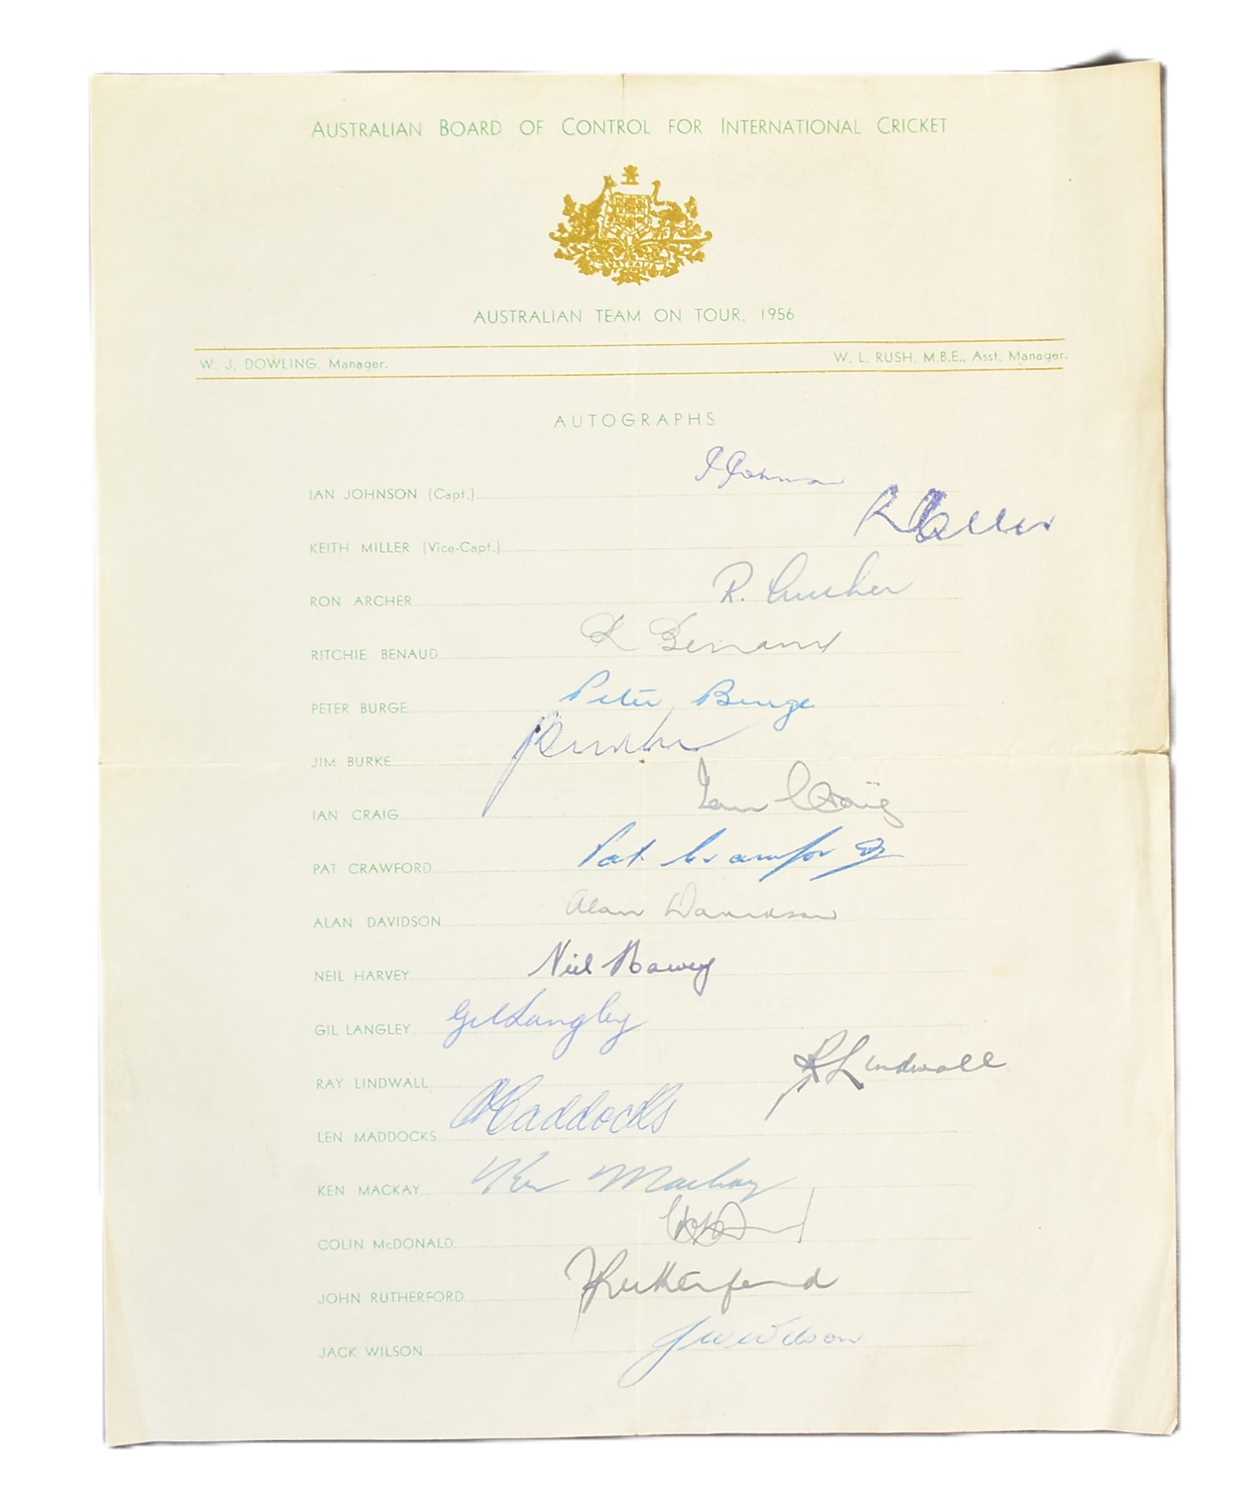 AUSTRALIAN BOARD OF CONTROL FOR INTERNATIONAL CRICKET
AUSTRALIA
AUSTRALIAN TEAM ON TOUR, 1956
W. J. DOWLING, Manager. W. L. RUSH, M.B.E., Asst. Manager.
AUTOGRAPHS
IAN JOHNSON (Capt.) I Johnson
KEITH MILLER (Vice-Capt.)
RON ARCHER R. Archer
RITCHIE BENAUD R Benaud
PETER BURGE Peter Burge
JIM BURKE
IAN CRAIG Ian Craig
PAT CRAWFORD Pat Crawford
ALAN DAVIDSON Alan Davidson
NEIL HARVEY Neil Harvey
GIL LANGLEY Gil Langley
RAY LINDWALL R Lindwall
LEN MADDOCKS Maddocks
KEN MACKAY Ken Mackay
COLIN McDONALD
JOHN RUTHERFORD J Rutherford
JACK WILSON J W Wilson